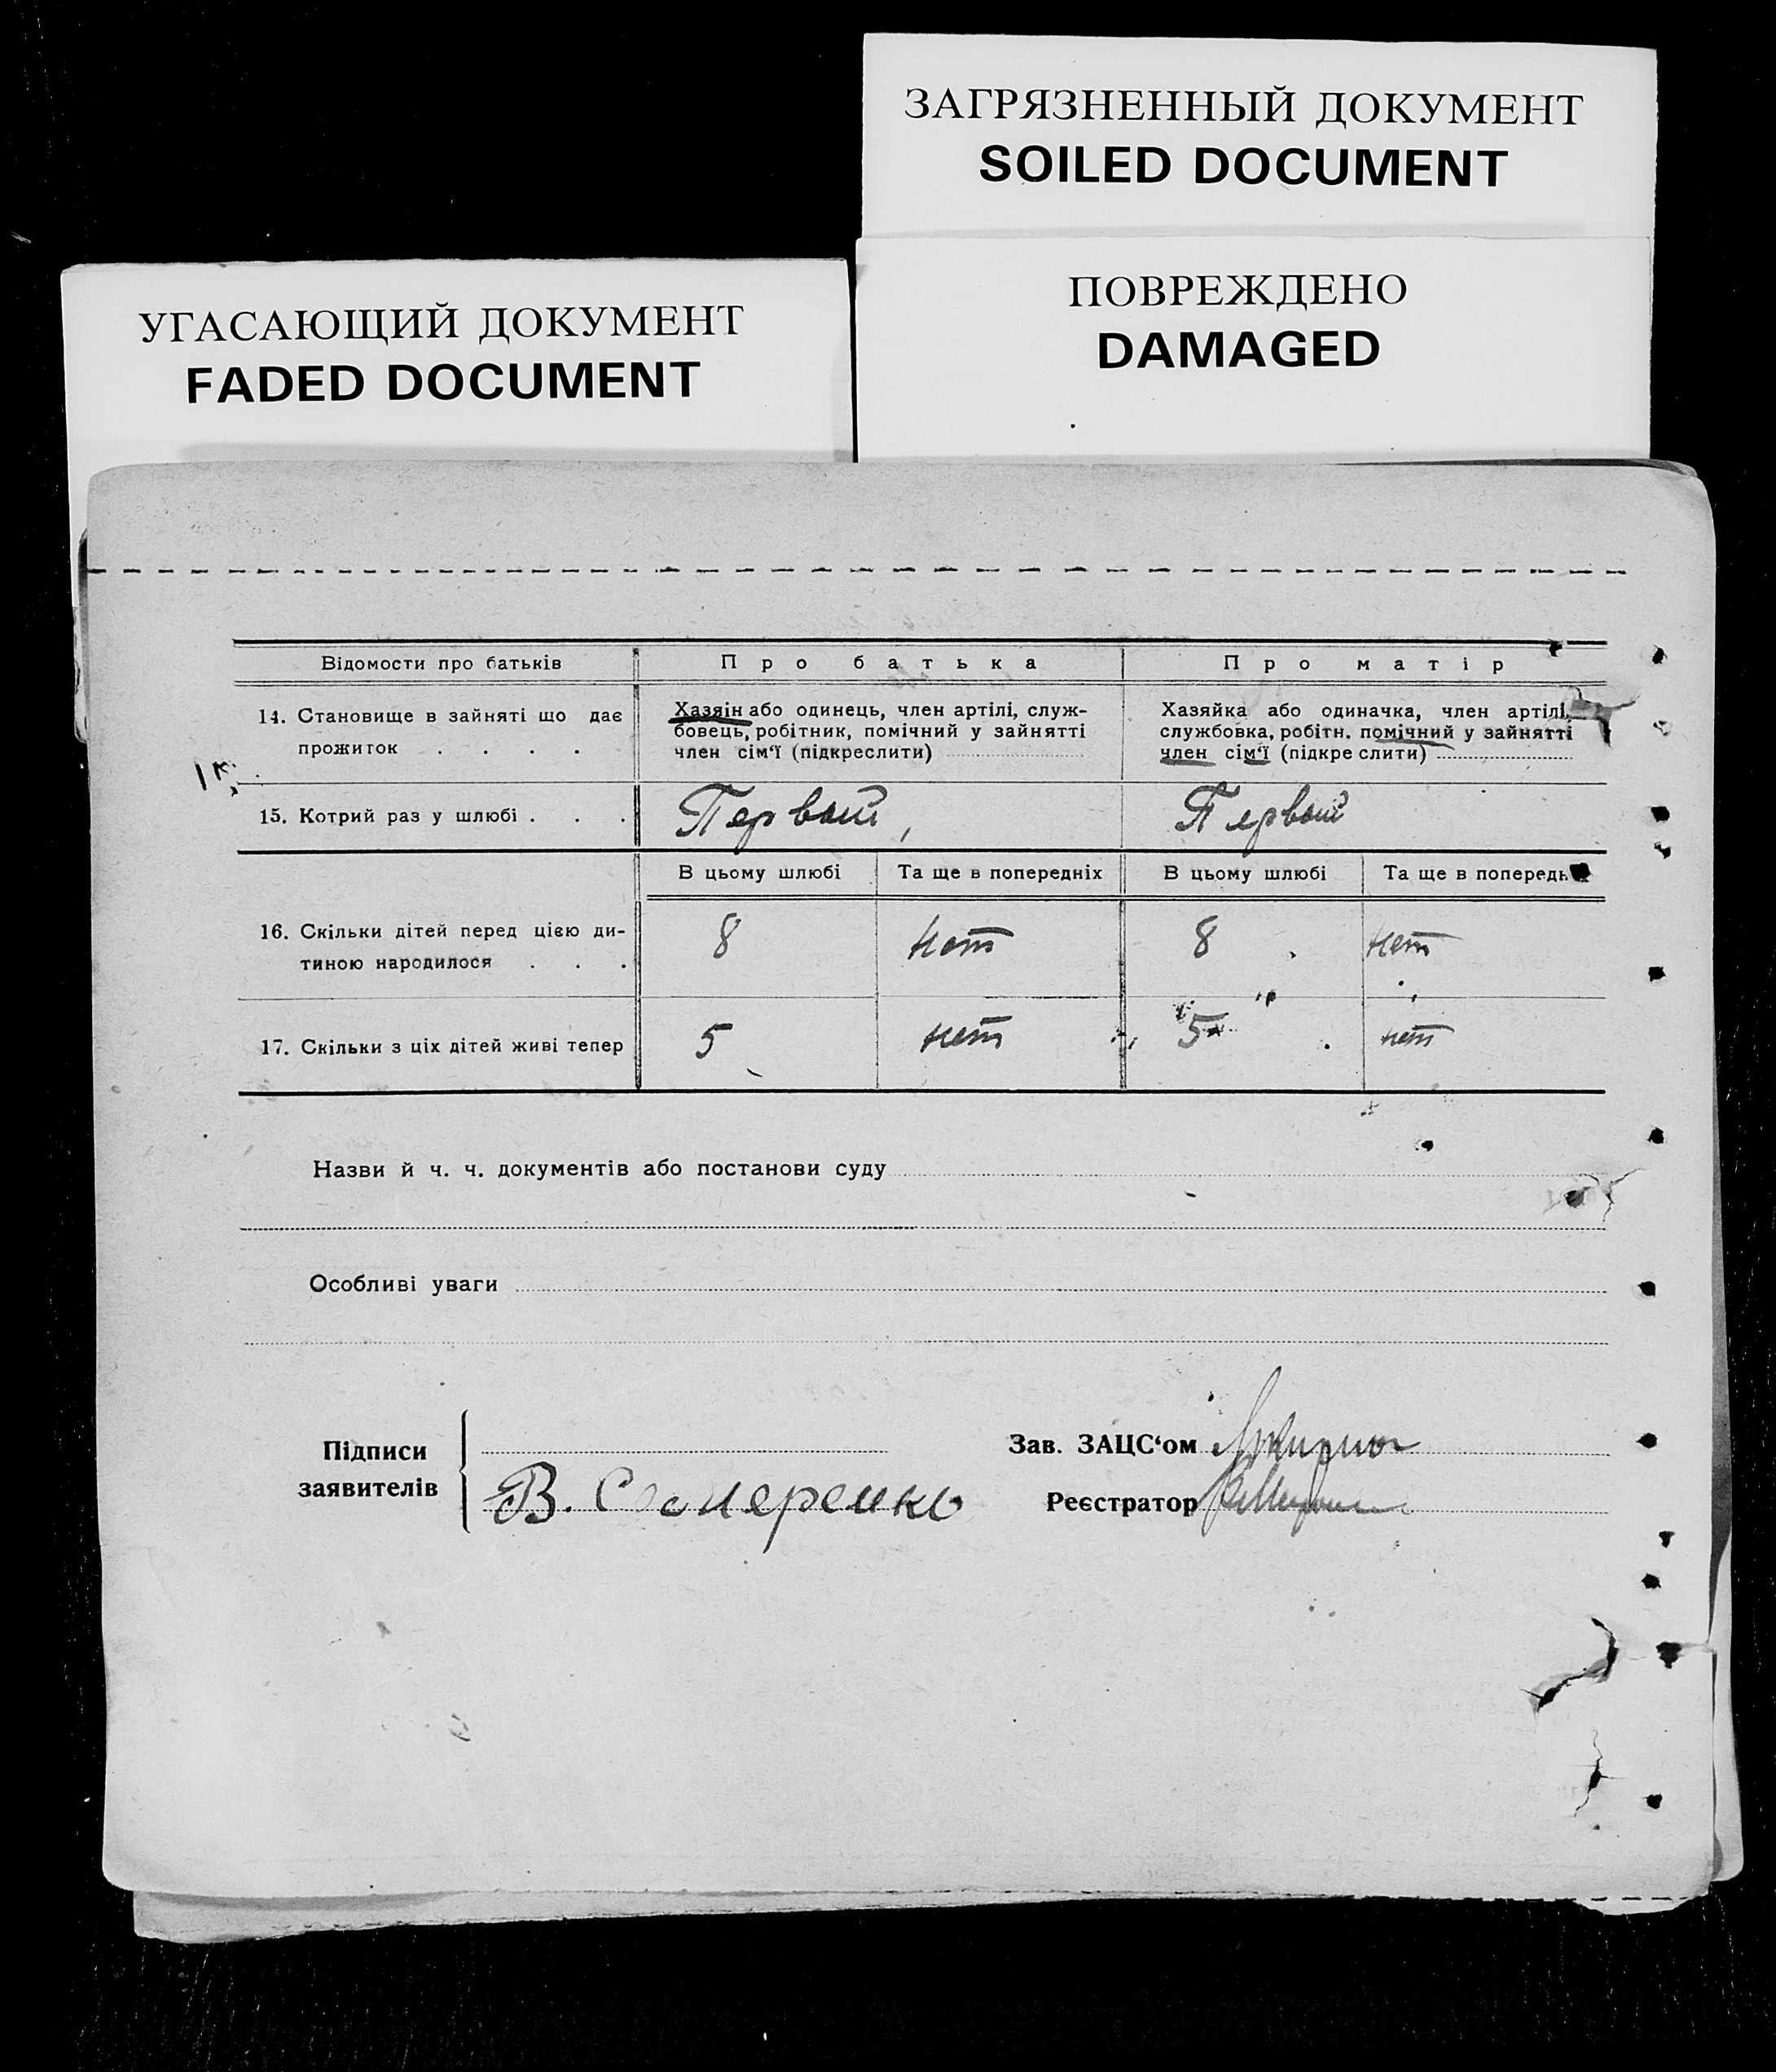 ЗАГРЯЗНЕННЫЙ ДОКУМЕНТ
SOILED DOCUMENT
ПОВРЕЖДЕНО
DAMAGED
УГАСАЮЩИЙ ДОКУМЕНТ
FADED DOCUMENT
Відомости про батьків Про батька Про матір
14. Становище в зайняті що дає прожиток . . . .
Хазяін або одинець, член артілі, служ-
бовець, робітник, помічний у зайнятті
член сім'ї (підкреслити)
Хазяйка або одиначка, член артілі,
службовка, робітн. помічний у зайнятті
член сім'ї (підкреслити)
15. Котрий раз у шлюбі . . . Первый Первый
В цьому шлюбі Та ще в попередніх В цьому шлюбі Та ще в попередн
16. Скільки дітей перед цією ди-
тиною народилося . . . 8 нет 8 нет
17. Скільки з ціх дітей живі тепер 5 нет 5 нет
Назви й ч. ч. документів або постанови суду
Особливі уваги
Підписи
заявителів
В.
Зав. ЗАЦС'ом
Реєстратор